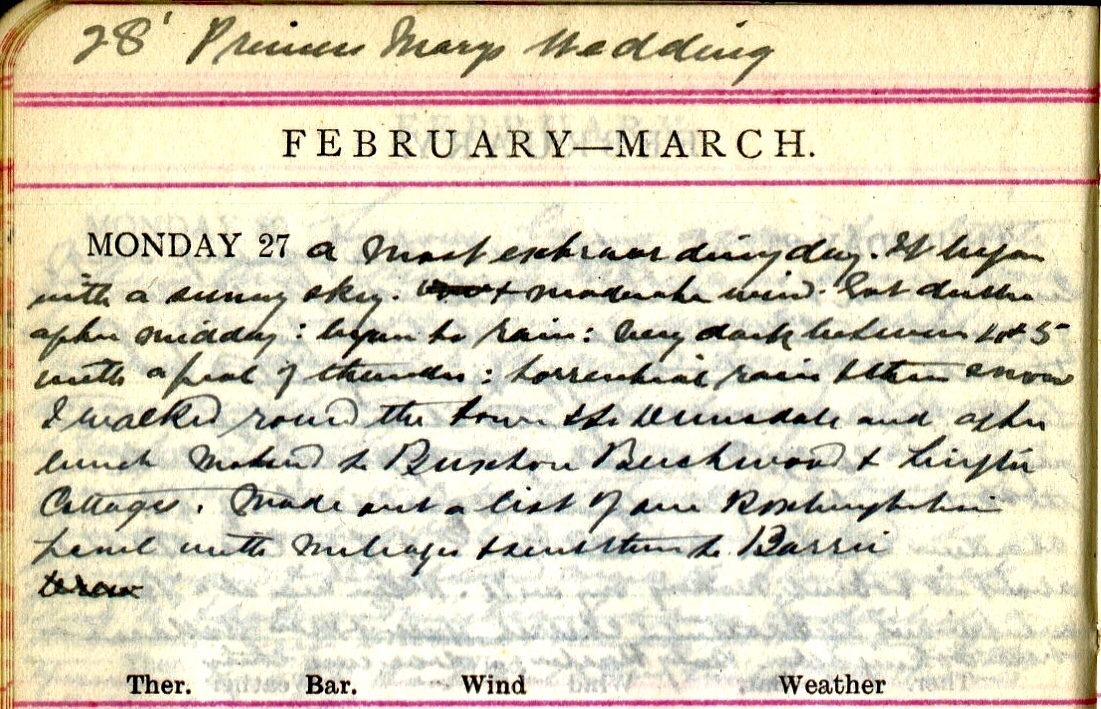 28' Princess Marys Wedding
FEBRUARY—MARCH.
MONDAY 27 a most extraordinary day. It began
with a sunny sky. moderate wind. Got duller
after midday : began to rain : very dark between 4 & 5
with a peal of thunder : torrential rain & then snow
I walked round the town & to Dunsdale and after
lunch motored to Buxton Birchwood &
Cottages. Made out a list of our Roxburghshire
panel with mileages & sent them to Barrie
Ther. Bar. Wind Weather